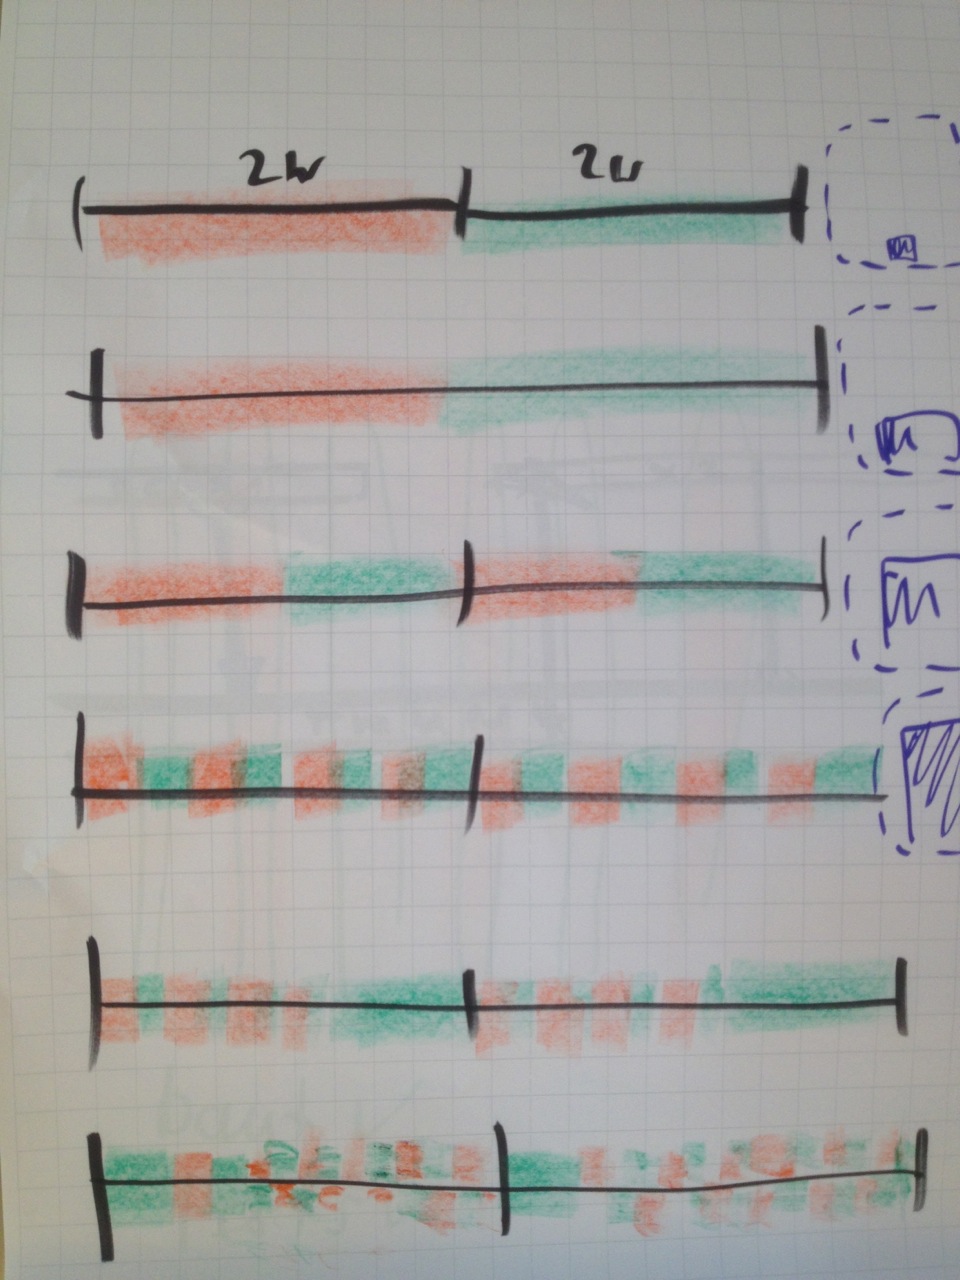 2w 2w